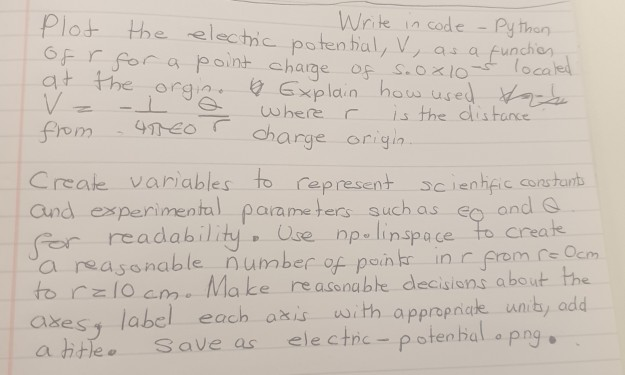 Write in code - Python
Plot the electric potential, V, as a function
of r for a point charge of 5.0x10^-5 located
at the orgin. Explain how used
V = -1/4πϵ0 Q/r where r is the distance
from charge origin.
Create variables to represent scientific constants
and experimental parameters such as e0 and Q
for readability. Use np.linspace to create
a reasonable number of points in r from r=0cm
to r=10 cm. Make reasonable decisions about the
axes, label each axis with appropriate units, add
a title. Save as electric-potential.png.